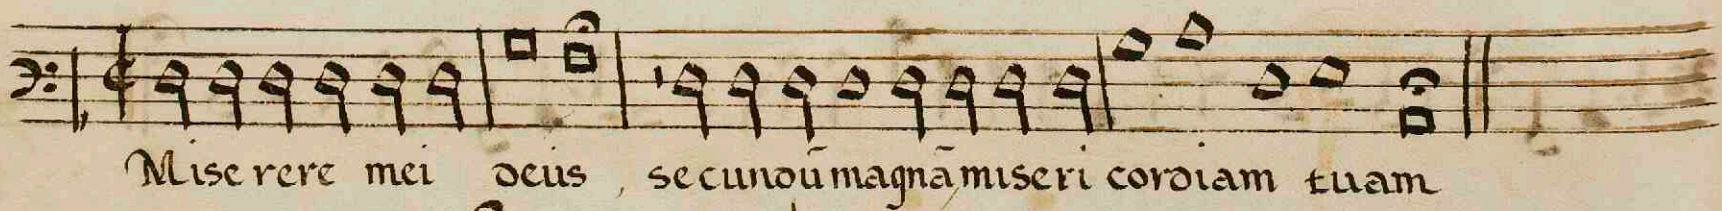 Miserere mei deus, secundū magnā misericordiam tuam